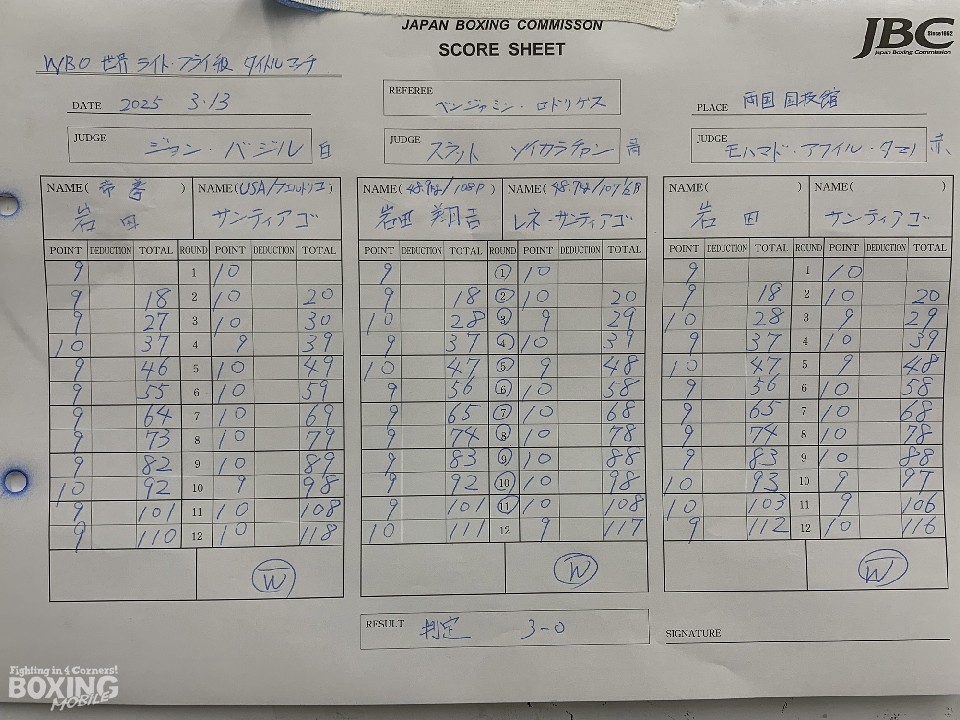 JAPAN BOXING COMMISSON
SCORE SHEET
JBC
Since1952
Japan Boxing Commission
WBO 世界 ライト・フライ級 タイトルマッチ
DATE 2025 3.13
REFEREE ベンジャミン・ロドリゲス
PLACE 両国国技館
JUDGE ジョン・バジル 白
JUDGE スラット ソイカラチャン 青
JUDGE モハマド・アフィル・タマン 赤
NAME( 帝拳 ) NAME(USA/プエルトリコ) NAME(48.9kg/108P) NAME( NAME( ) NAME( )
岩田 サンティアゴ 岩田 翔吉 レネ・サンティアゴ 岩田 サンティアゴ
POINT DEDUCTION TOTAL ROUND POINT DEDUCTION TOTAL POINT DEDUCTION TOTAL ROUND POINT DEDUCTION TOTAL POINT DEDUCTION TOTAL ROUND POINT DEDUCTION TOTAL
9 1 10 9 1 10 9 1 10
9 18 2 10 20 9 18 2 10 20 9 18 2 10 20
9 27 3 10 30 10 28 3 9 29 10 28 3 9 29
10 37 4 9 39 9 37 4 10 39 9 37 4 10 39
9 46 5 10 49 10 47 5 9 48 10 47 5 9 48
9 55 6 10 59 9 56 6 10 58 9 56 6 10 58
9 64 7 10 69 9 65 7 10 68 9 65 7 10 68
9 73 8 10 79 9 74 8 10 78 9 74 8 10 78
9 82 9 10 89 9 83 9 10 88 9 83 9 10 88
10 92 10 9 98 9 92 10 10 98 10 93 10 9 97
9 101 11 10 108 9 101 11 10 108 10 103 11 9 106
9 110 12 10 118 10 111 12 9 117 9 112 12 10 116
W W W
RESULT 判定 3-0
SIGNATURE
Fighting in 4 Corners!
BOXING
MOBILE